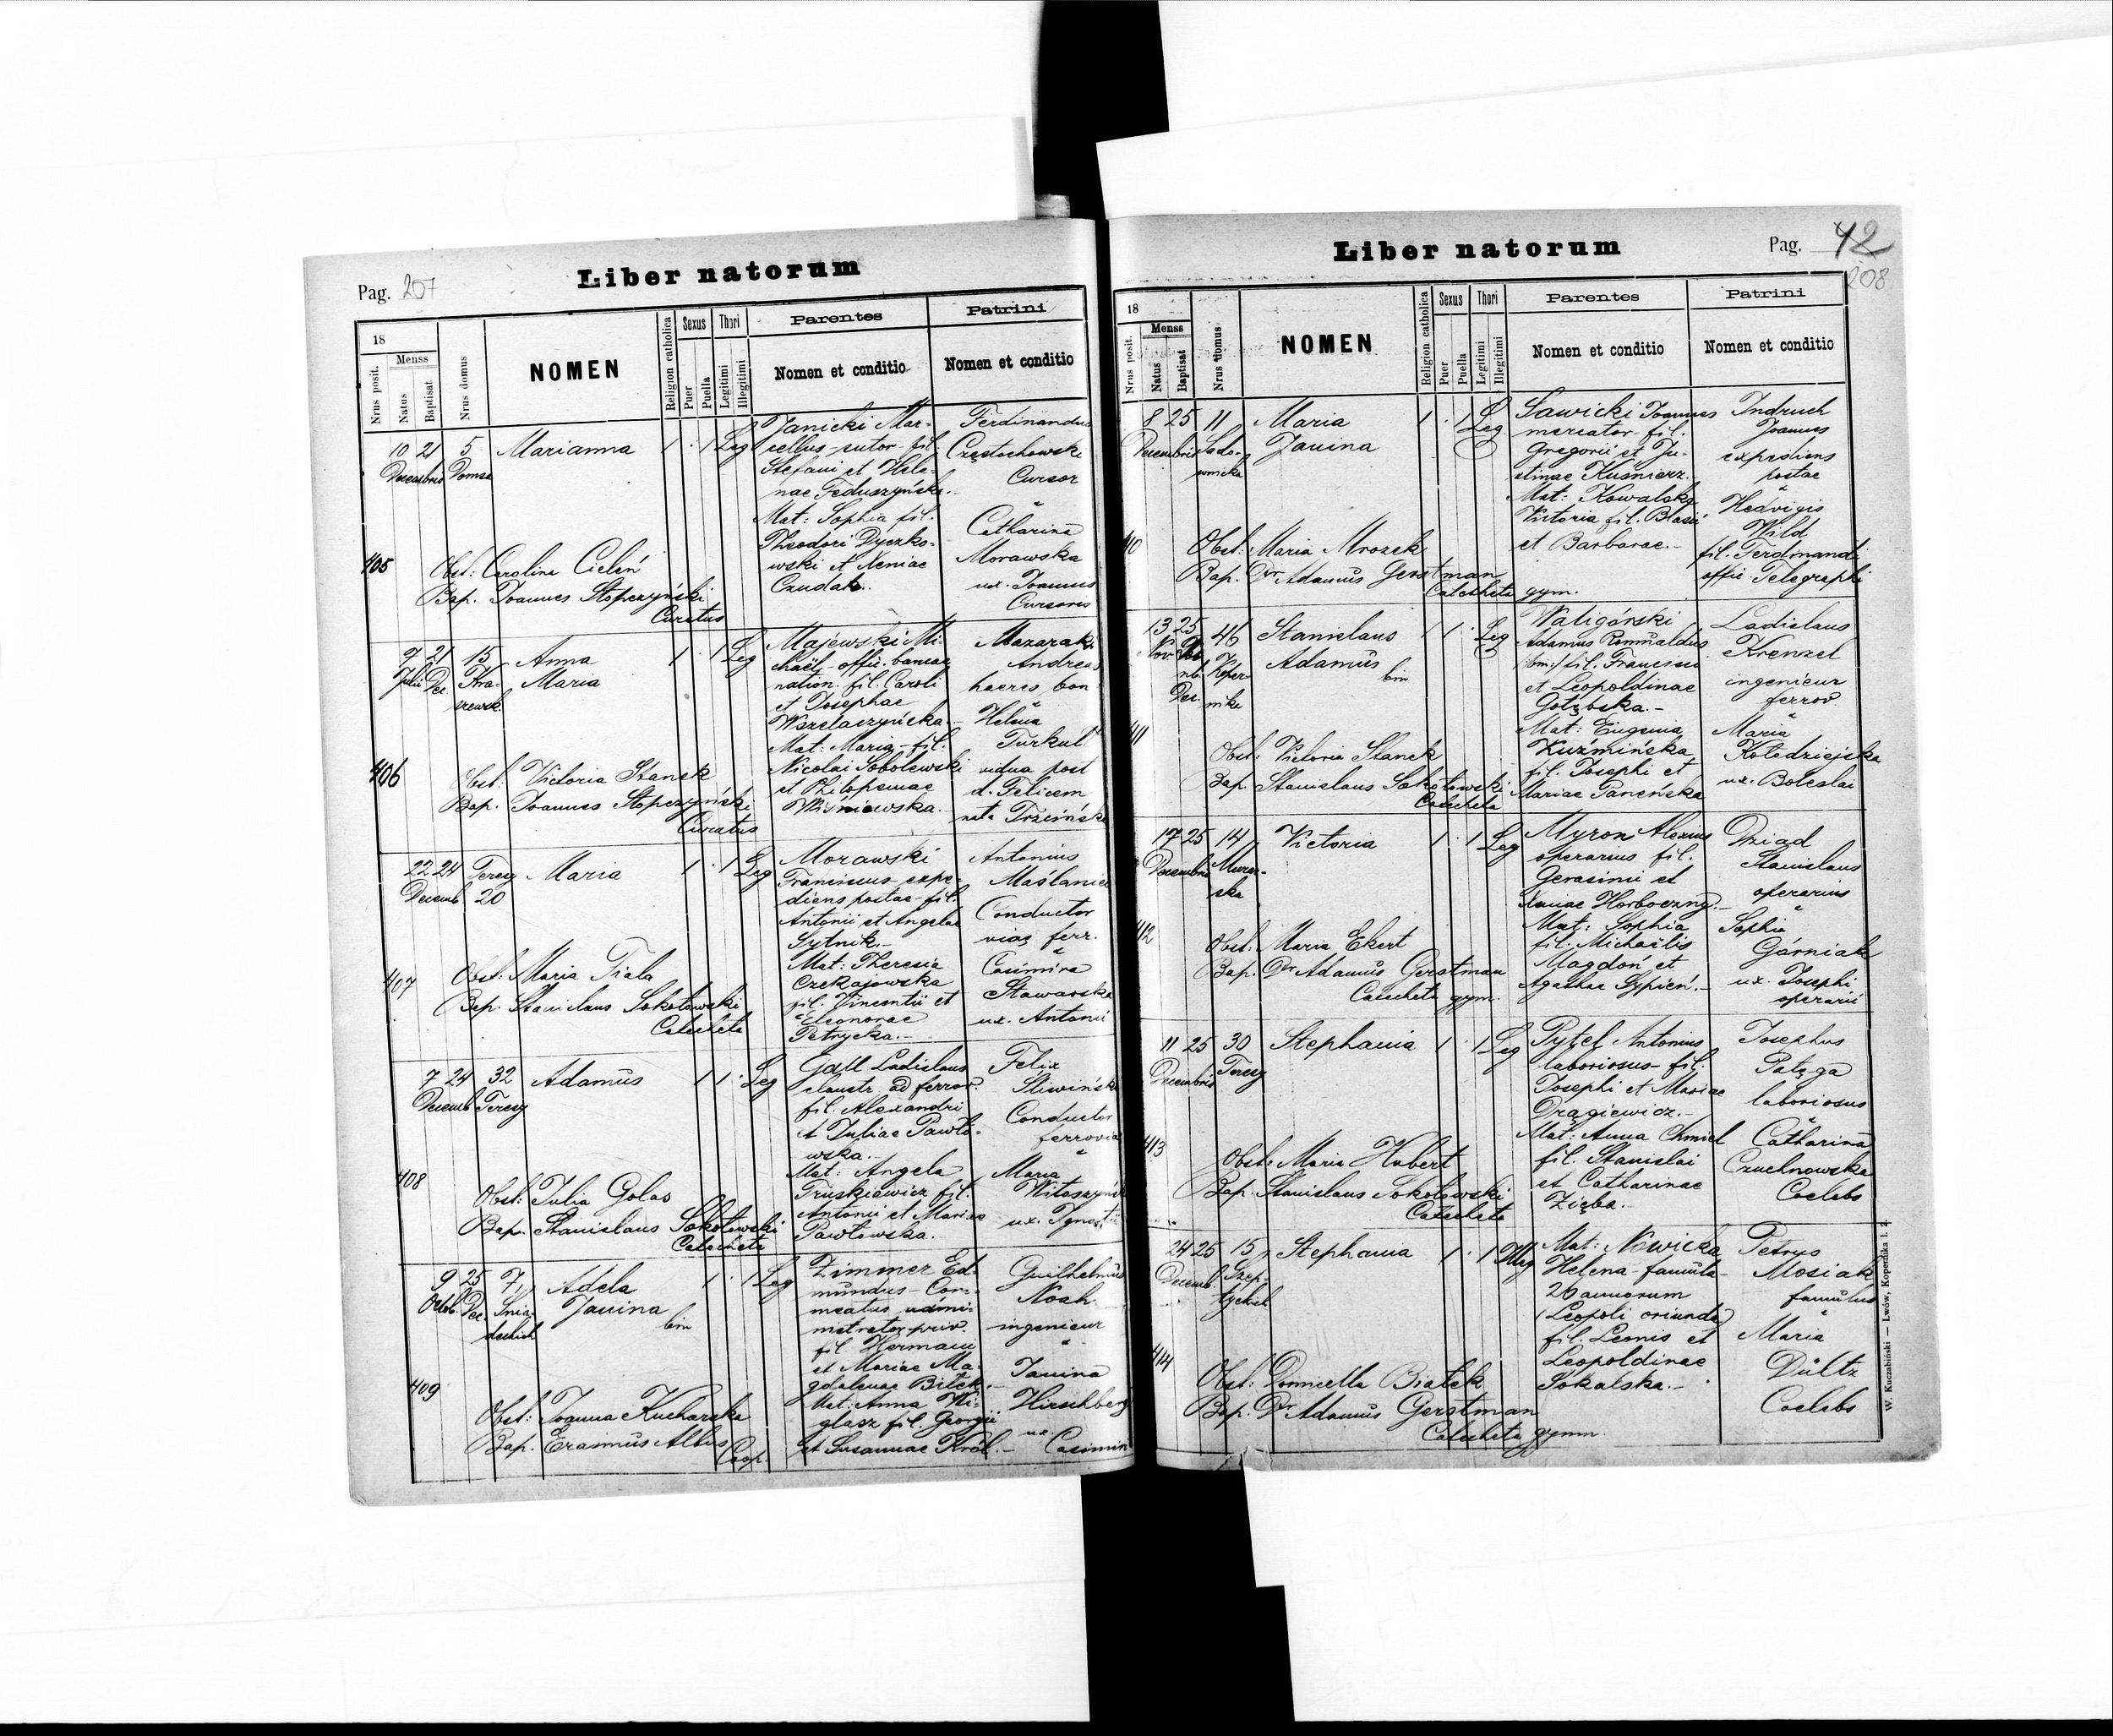 Pag. 207
Liber natorum
18
Menss
Nrus posit.
Natus
Baptisat
Nrus domus
NOMEN
Religion catholica
Sexus
Puer
Puella
Thori
Legitimi
Illegitimi
Parentes
Nomen et conditio
Patrini
Nomen et conditio
405
10 21 5 Marianna 1 · 1 Leg
Decembris Domsa
Obst: Carolina Cieleń
Bap. Joannes Stopczyński
Curatus
Janicki Mar-
cellus - sutor - fil.
Stefani et Hele-
nae Feduszyńska.-
Mat: Sophia fil.
Theodori Dyczko-
wski et Xeniae
Czudak.
Ferdinandus
Częstochowski
Cursor
"
Catharina
Morawska
ux. Joannis
Cursoris
406
9 21 15 Anna 1 · 1 Leg
Julii Dec. Kra- Maria
szewsk.
Obst: Victoria Stanek
Bap. Joannes Stopczyński
Curatus
Majewski Mi-
chaël - offic. bancae
nation. fil. Caroli
et Josephae
Wszelaczyńska.-
Mat: Maria - fil.
Nicolai Sobolewski
et Philopenae
Wiśniowska.
Mazaraki
Andreas
haeres bon
"
Helena
Turkuł
vidua post
d. Felicem
nata Trzcińska
407
22 24 Teresy Maria 1 · 1 Leg
Decemb. 20
Obst: Maria Fiala
Bap. Stanislaus Sokołowski
Catecheta
Morawski
Franciscus expe-
diens postae - fil.
Antonii et Angelae
Sytnik.-
Mat: Theresia
Czekajowska
fil. Vincentii et
Eleonorae
Petrycka.-
Antonius
Maślaniec
Conductor
viae ferr.
"
Casimira
Stawarska
ux. Antonii
408
7 24 32 Adamus 1 1 · Leg
Decemb. Teresy
Obst: Julia Golas
Bap. Stanislaus Sokołowski
Catecheta
Gall Ladislaus
claustr. ad ferrov.
fil. Alexandri
et Juliae Pawło-
wska.-
Mat: Angela
Truskiewicz fil.
Antonii et Mariae
Pawłowska.
Felix
Śliwiński
Conductor
ferrovia
"
Maria
ux.
409
9 25 7 Adela 1 · 1 Leg
Octob. Dec. Śnia- Janina bin
deckich
Obst: Joanna Kucharska
Bap. Erasmus Albus
Coop.
Zimmer Ed-
mundus - Com-
meatus admini-
strator priv.
fil Hermani
et Mariae Ma-
gdalenae Bilek.-
Mat: Anna Mi-
glasz fil. Georgii
et Susannae Król.-
Guilhelmus
Noah
ingenieur
"
Janina
Hirschberg
ux. Casimiri
Liber natorum
Pag. 42
208
18
Menss
Nrus posit.
Natus
Baptisat
Nrus domus
NOMEN
Religion catholica
Sexus
Puer
Puella
Thori
Legitimi
Illegitimi
Parentes
Nomen et conditio
Patrini
Nomen et conditio
410
8 25 11 Maria 1 · 1 Leg
Decembris Sado- Janina
wnicka
Obst: Maria Mrozek
Bap. Dr Adamus Gerstman
Catecheta gym.
Sawicki Joannes
mercator - fil.
Gregorii et Ju-
stinae Kuśnierz.
Mat: Kowalska
Victoria fil. Blasii
et Barbarae.-
Indruch
Joannes
expediens
postae
"
Hedvigis
Wild
fil. Ferdinandi
offic Telegraphi
411
13 25 46 Stanislaus 1 1 · Leg
Nov. Koper- Adamus bin
Dec. nika
Obst: Victoria Stanek
Bap. Stanislaus Sokołowski
Catecheta
Waligórski
Adamus Romualdus
/bin:/ fil. Francisci
et Leopoldinae
Gołębska.-
Mat: Eugenia
Kuźmińska
fil. Josephi et
Mariae Paneńska
Ladislaus
Krenzel
ingenieur
ferrov.
"
Maria
Kołodziejska
ux. Boleslai
412
17 25 14 Victoria 1 · 1 Leg
Decembris Murar-
ska
Obst: Maria Ekert
Bap. Dr Adamus Gerstman
Catecheta gym.
Myron Alexius
operarius fil.
Gerasimi et
Xeniae Horboczng.-
Mat: Sophia
fil. Michaëlis
Magdoń et
Agathae Sypień.-
Dziad
Stanislaus
operarius
"
Sophia
Górniak
ux. Josephi
operarii
413
11 25 30 Stephania 1 · 1 Leg
Decembris Teresy
Obst: Maria Hubert
Bap. Stanislaus Sokołowski
Catecheta
Pytel Antonius
laboriosus - fil.
Josephi et Mariae
Drągiewicz.-
Mat: Anna Chmiel
fil. Stanislai
et Catharinae
Zięba.-
Josephus
Pałęga
laboriosus
"
Catharina
Czuchnowska
Coelebs
414
24 25 15 Stephania 1 · 1 Illeg
Decemb. Szep-
tyckich
Obst: Domicella Białek
Bap. Dr Adamus Gerstman
Catecheta gymn.
Mat: Nowicka
Helena - famula -
26 annorum
(Leopoli oriunda)
fil. Lemis et
Leopoldinae
Sokalska.-
Petrus
Mosiak
famulus
"
Maria
Dültz
Coelebs
W. Kuczabiński — Lwów, Kopernika l. 2.